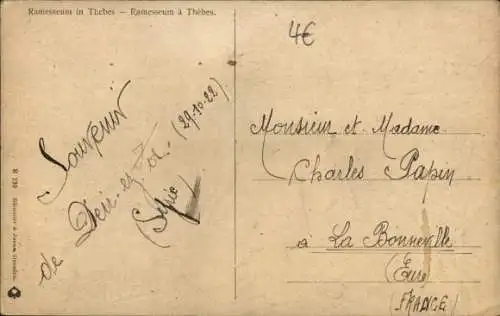 Ramesseum in Thebes — Ramesseum à Thèbes.
4€
Souvenir
de Deir-ez-Zor. (29-10-22)
(Syrie)
Monsieur et Madame
Charles Papin
à La Bonneville
(Eure)
(FRANCE)